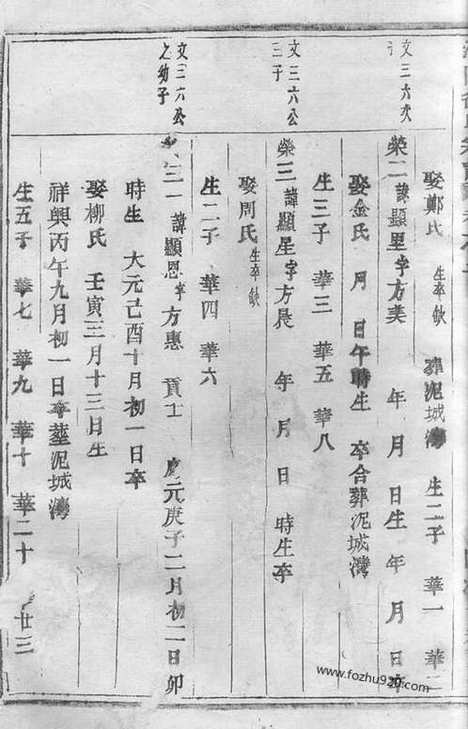 娶鄭氏 生卒欽 葬泥城灣 生二子 華一 華二
文三六次子
榮二 諱顯里字方美 年 月 日生 年 月 日卒
娶金氏 月 日午時生 卒合葬泥城灣
生三子 華三 華五 華八
文三六公三子
榮三 諱顯星字方晨 年 月 日 時生卒
娶周氏 生卒欽
生二子 華四 華六
文三六公之幼子
三一 諱顯恩字方惠 貢士 慶元庚子二月初二日卯
時生 大元己酉十月初一日卒
娶柳氏 壬寅三月十三月生
祥興丙午九月初一日卒塟泥城灣
生五子 華七 華九 華十 華二十 廿三
www.fozhu920.com